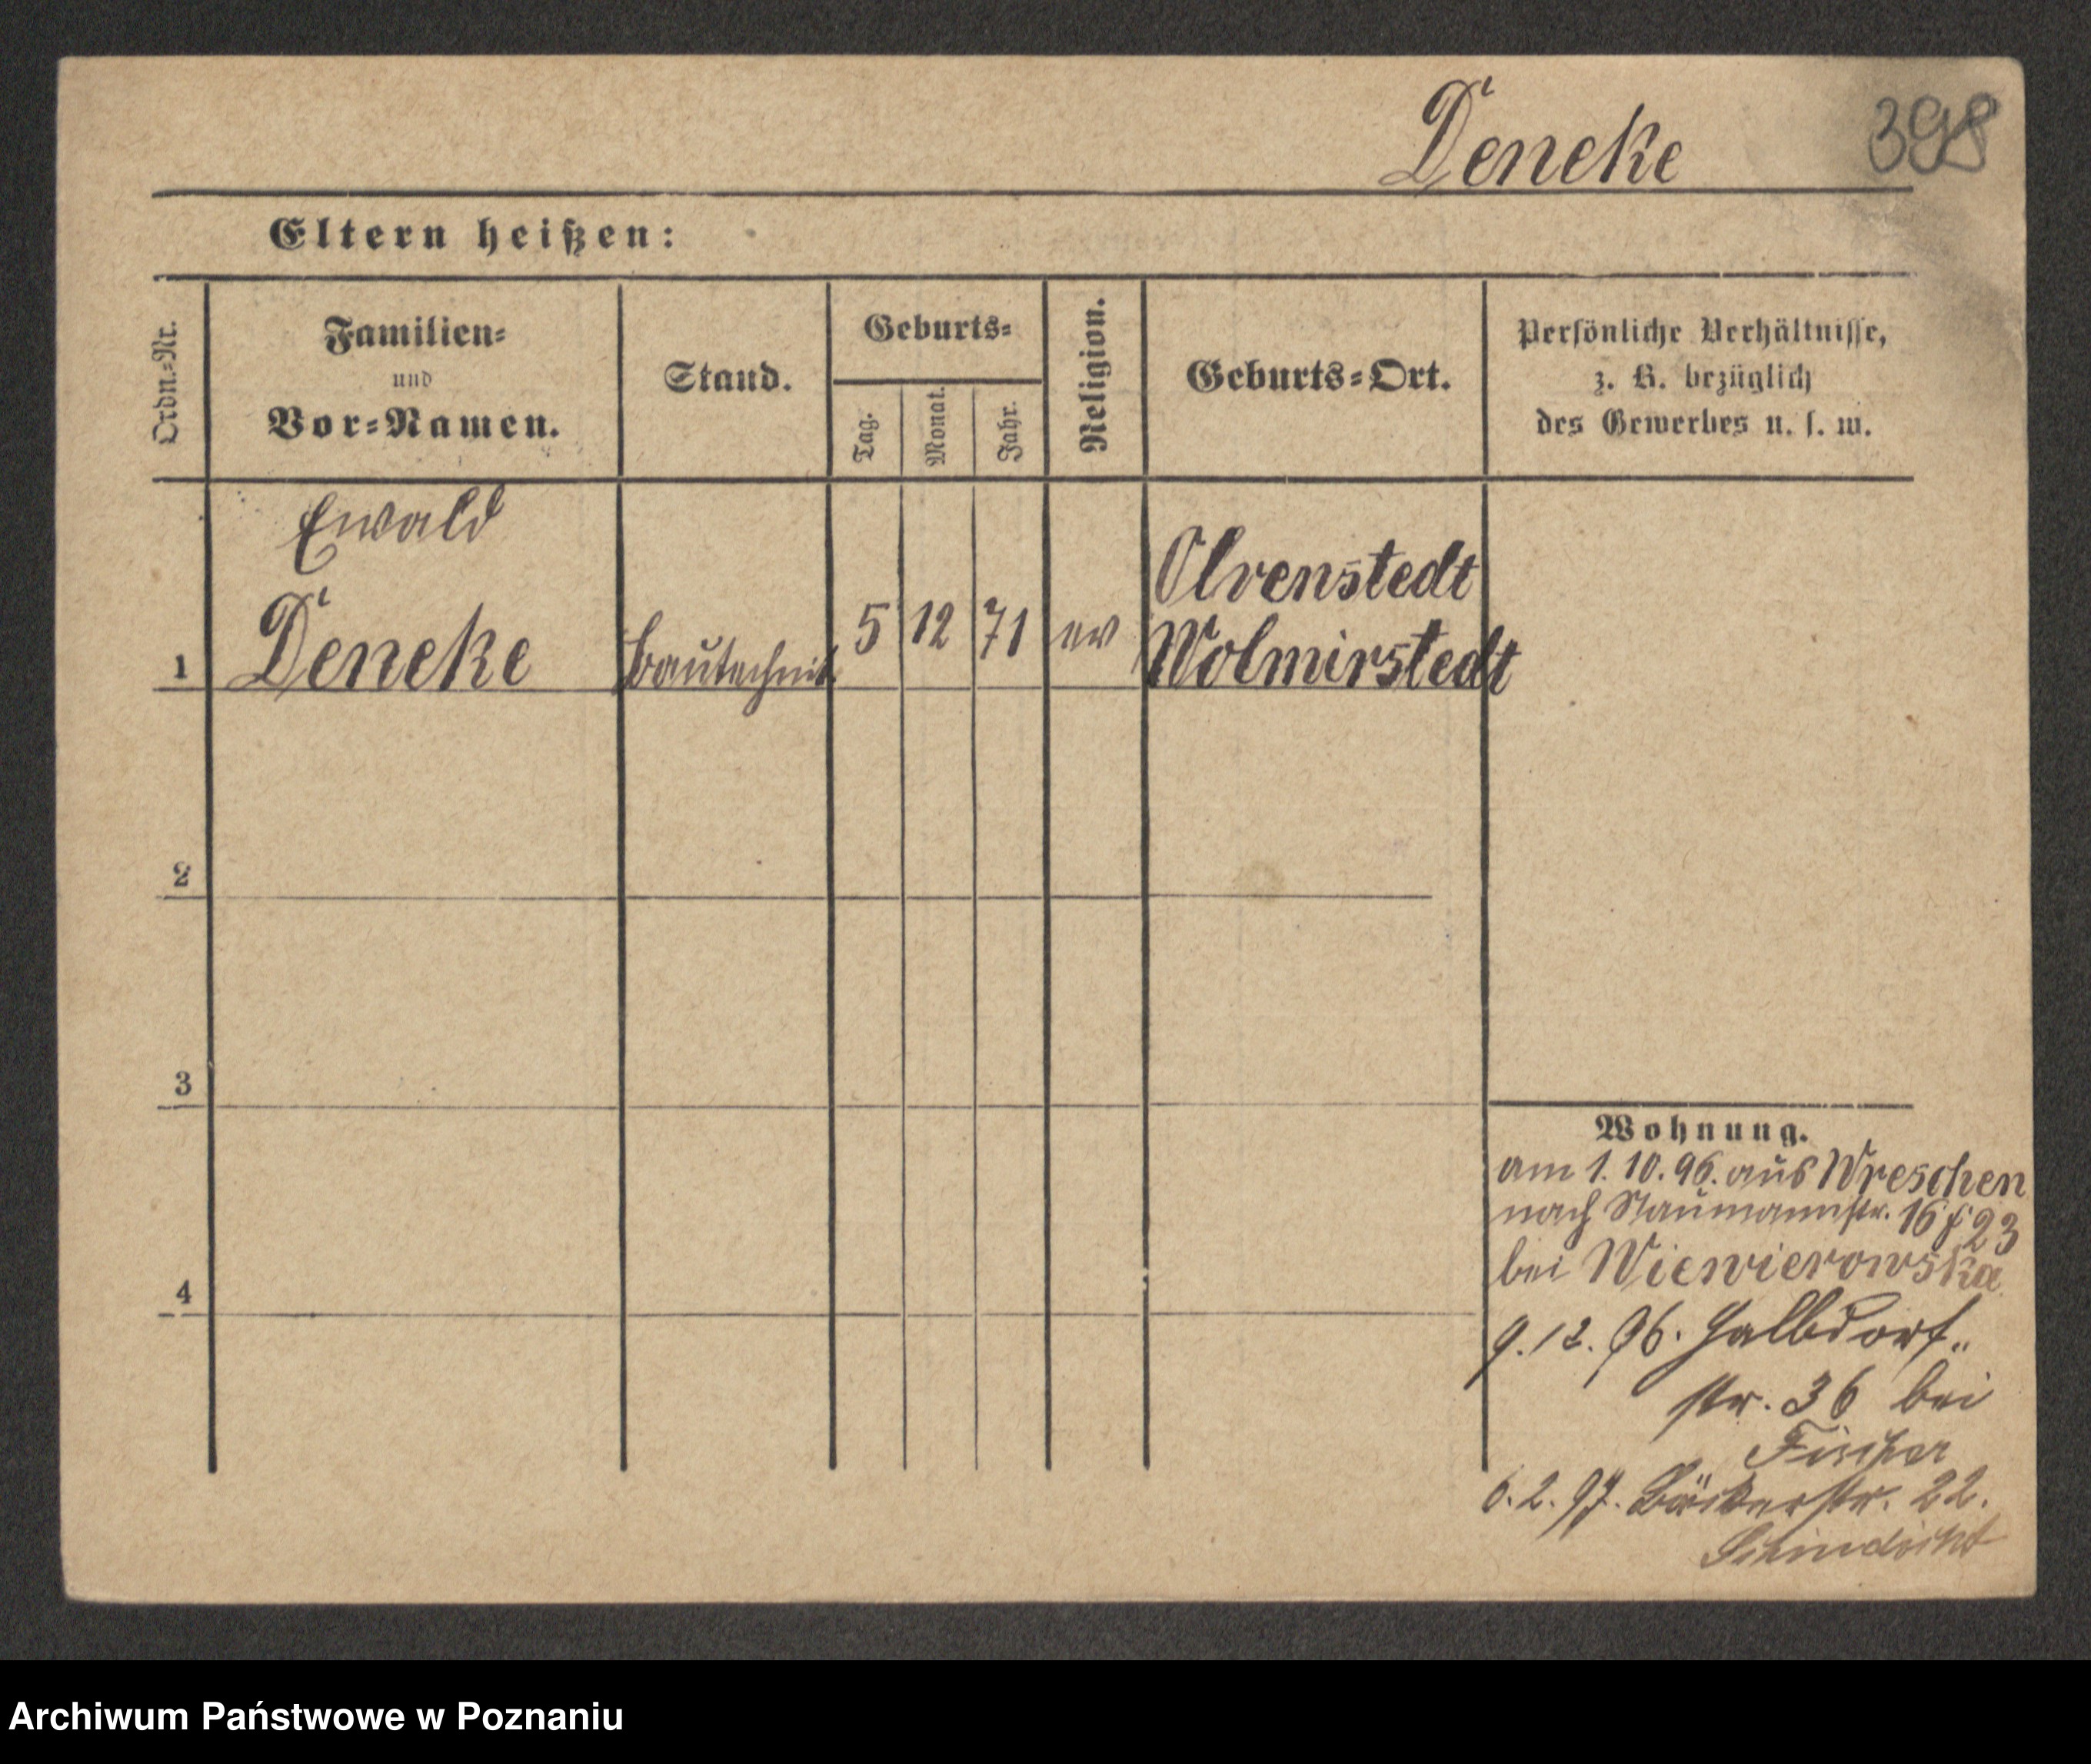 Deneke 398
Eltern heißen:
Ordn.=Nr.
Familien=
und
Vor=Namen.
Stand.
Geburts=
Tag.
Monat.
Jahr.
Religion.
Geburts=Ort.
Persönliche Verhältnisse,
z. B. bezüglich
des Gewerbes u. s. w.
Ewald
1 Deneke Bautechnik. 5 12 71 ev
Olvenstedt
Wolmirstedt
2
3
4
Wohnung.
am 1. 10. 96. aus Wreschen
nach Naumannstr. 16 23
bei Wiewierowska
9. 12. 96. Halbdorf„
str. 36 bei
Fischer
6. 2. 97. Bäckerstr. 22.
Archiwum Państwowe w Poznaniu